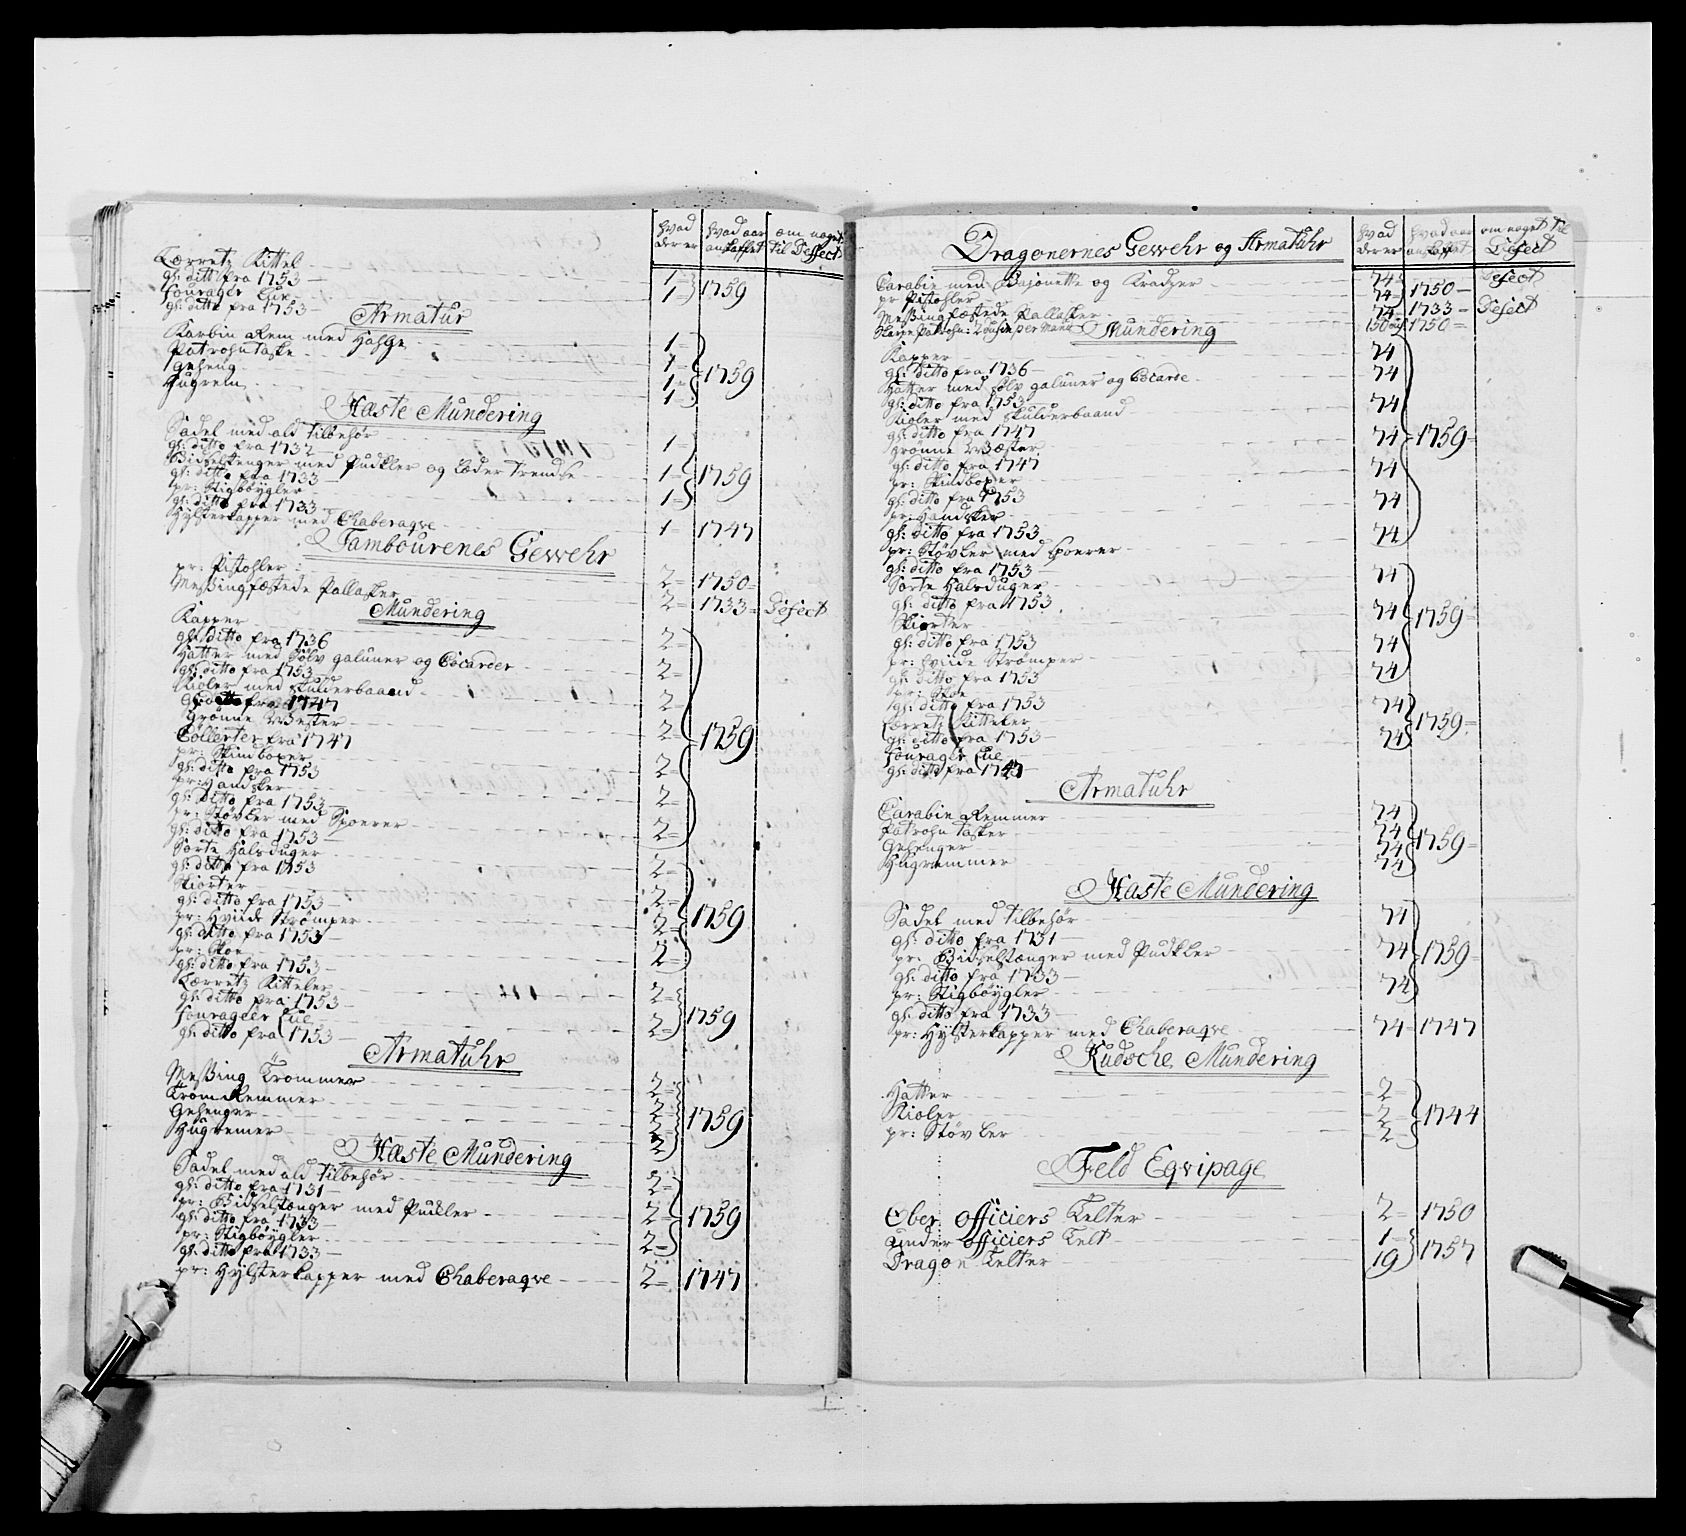 hvad der er | hvad aar anskaffet | om noget til Defect
Lærretz Kittel
gl: ditto fra 1753 — 1 =
Fourager Lue
gl: ditto fra 1753 — 1 = 1759
Armatur
Karbin Rem med Hahge 1 =
Patrohntaske 1 =
Geheng 1 = 1759
Hugrem 1 =
Hæste Mundering
Sadel med ald Tilbehør
gl: ditto fra 1732 — 1 =
Bidselstenger med Pudkler og Læder Trendse
gl: ditto fra 1733 — 1 = 1759
pr: Stigbøygler
gl: ditto fra 1733 — 1 =
Hylsterkapper med Chaberaqve 1 = 1747
Tambourenes Gewehr
pr: Pistohler 2 = 1750 =
Messingfæstede Pallasker 2 = 1733 = Defect
Mundering
Kapper
gl: ditto fra 1736 2 =
Hatter med Sölv galuner og Cocarder
gl: ditto fra 1753 2 =
Kioler med Skulderbaand
gl: ditto fra 1747 2 =
Grönne Wester
Collerter fra 1747 2 = 1759
pr: Skinboxer
gl: ditto fra 1753 2 =
pr: Handsker
gl: ditto fra 1753 — 2 =
pr: Støvler med Sporer
gl: ditto fra 1753 2 =
Sorte Halsduger
gl: ditto fra 1753 2 =
Skiorter
gl: ditto fra 1753 — 2 =
pr: Hviide Strømper
gl: ditto fra 1753 — 2 = 1759
pr: Skoe
gl: ditto fra 1753 — 2 =
Lærretz Kitteler
gl: ditto fra 1753 — 2 =
Fourageer Lue
gl: ditto fra 1753 — 2 = 1759
Armatuhr
Messing Trommer 2 =
Trom Remmer 2 =
Gehenger 2 = 1759
Hugremer 2 =
Hæste Mundering
Sadel med ald Tilbehør
gl: ditto fra 1731 — 2 =
pr: Bidselstænger med Puckler
gl: ditto fra 1733 — 2 = 1759
pr: Stigbøygler
gl: ditto fra 1733 — 2 =
pr: Hylsterkapper med Chaberaqve 2 = 1747
hvad der er | hvad aar anskaffet | om noget til Defect
Dragonernes Gewehr og Armatuhr
Carabin med Bajonette og Kradzer 74 = Defect
pr Pistohler 74 = 1750 =
Messingfæstede Pallasker 74 = 1733 = Defect
Skarpe Patrohn: 2 dusin per Mand 150 dus 1750 =
Mundering
Kapper 74
gl: ditto fra 1736 —
Hatter med Sölv galuner og Cocarde 74
gl: ditto fra 1753 —
Kioler med Skulderbaand 74
gl: ditto fra 1747
Grönne Wæster 74 = 1759 =
gl: ditto fra 1747
pr: Skindboxer 74
gl: ditto fra 1753
pr: Handsker 74
gl: ditto fra 1753
pr: Støvler med Sporer 74
gl: ditto fra 1753
Sorte Halsduger 74
gl: ditto fra 1753
Skiorter 74 1759 =
gl: ditto fra 1753
pr: Hviide Strømper 74
gl: ditto fra 1753
pr: Skoe 74
gl: ditto fra 1753
Lærretz Kitteler 74
gl: ditto fra 1753 — 1759 =
Fourager Lue 74
gl: ditto fra 1747 —
Armatuhr
Carabin Remmer 74
Patrohn Tasker 74
Gehenger 74 1759 =
Hugremmer 74
Hæste Mundering
Sadel med Tilbehør 74
gl: ditto fra 1731 —
pr: Bidselstænger med Pudkler 74 1759 =
gl: ditto fra 1733 —
pr: Stigbøygler 74
gl: ditto fra 1733 —
pr: Hylsterkapper med Chaberaqve 74 = 1747
Kudsche Mundering
Hatter 2
Kioler 2 = 1744
pr: Støvler 2 =
Feld Eqvipage
Ober Officiers Telter 2 = 1750
Under Officiers Telt 1 =
Dragon Telter 19 1757